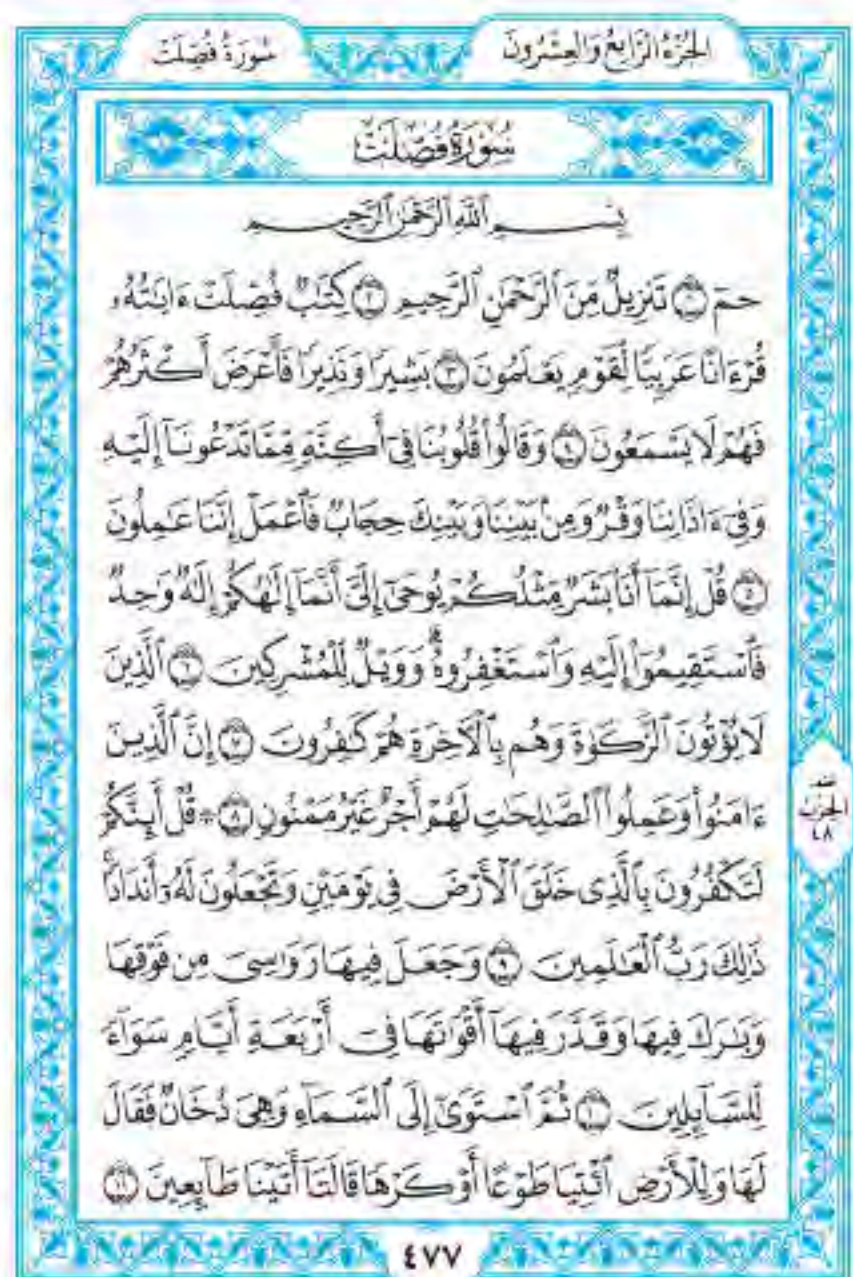 الجزء الرابع والعشرون
سورة فصلت
سُورَةُ فُصِّلَتْ
بِسْمِ ٱللَّهِ ٱلرَّحْمَٰنِ ٱلرَّحِيمِ
حمٓ ١ تَنزِيلٌ مِّنَ ٱلرَّحْمَٰنِ ٱلرَّحِيمِ ٢ كِتَٰبٌ فُصِّلَتْ ءَايَٰتُهُۥ
قُرْءَانًا عَرَبِيًّا لِّقَوْمٍ يَعْلَمُونَ ٣ بَشِيرًا وَنَذِيرًا فَأَعْرَضَ أَكْثَرُهُمْ
فَهُمْ لَا يَسْمَعُونَ ٤ وَقَالُوا۟ قُلُوبُنَا فِىٓ أَكِنَّةٍ مِّمَّا تَدْعُونَآ إِلَيْهِ
وَفِىٓ ءَاذَانِنَا وَقْرٌ وَمِنۢ بَيْنِنَا وَبَيْنِكَ حِجَابٌ فَٱعْمَلْ إِنَّنَا عَٰمِلُونَ
٥ قُلْ إِنَّمَآ أَنَا۠ بَشَرٌ مِّثْلُكُمْ يُوحَىٰٓ إِلَىَّ أَنَّمَآ إِلَٰهُكُمْ إِلَٰهٌ وَٰحِدٌ
فَٱسْتَقِيمُوٓا۟ إِلَيْهِ وَٱسْتَغْفِرُوهُ ۗ وَوَيْلٌ لِّلْمُشْرِكِينَ ٦ ٱلَّذِينَ
لَا يُؤْتُونَ ٱلزَّكَوٰةَ وَهُم بِٱلْءَاخِرَةِ هُمْ كَٰفِرُونَ ٧ إِنَّ ٱلَّذِينَ
ءَامَنُوا۟ وَعَمِلُوا۟ ٱلصَّٰلِحَٰتِ لَهُمْ أَجْرٌ غَيْرُ مَمْنُونٍ ٨ ۞ قُلْ أَئِنَّكُمْ
لَتَكْفُرُونَ بِٱلَّذِى خَلَقَ ٱلْأَرْضَ فِى يَوْمَيْنِ وَتَجْعَلُونَ لَهُۥٓ أَندَادًا ۚ
ذَٰلِكَ رَبُّ ٱلْعَٰلَمِينَ ٩ وَجَعَلَ فِيهَا رَوَٰسِىَ مِن فَوْقِهَا
وَبَٰرَكَ فِيهَا وَقَدَّرَ فِيهَآ أَقْوَٰتَهَا فِىٓ أَرْبَعَةِ أَيَّامٍ سَوَآءً
لِّلسَّآئِلِينَ ١٠ ثُمَّ ٱسْتَوَىٰٓ إِلَى ٱلسَّمَآءِ وَهِىَ دُخَانٌ فَقَالَ
لَهَا وَلِلْأَرْضِ ٱئْتِيَا طَوْعًا أَوْ كَرْهًا قَالَتَآ أَتَيْنَا طَآئِعِينَ ١١
الحزب
٤٨
٤٧٧